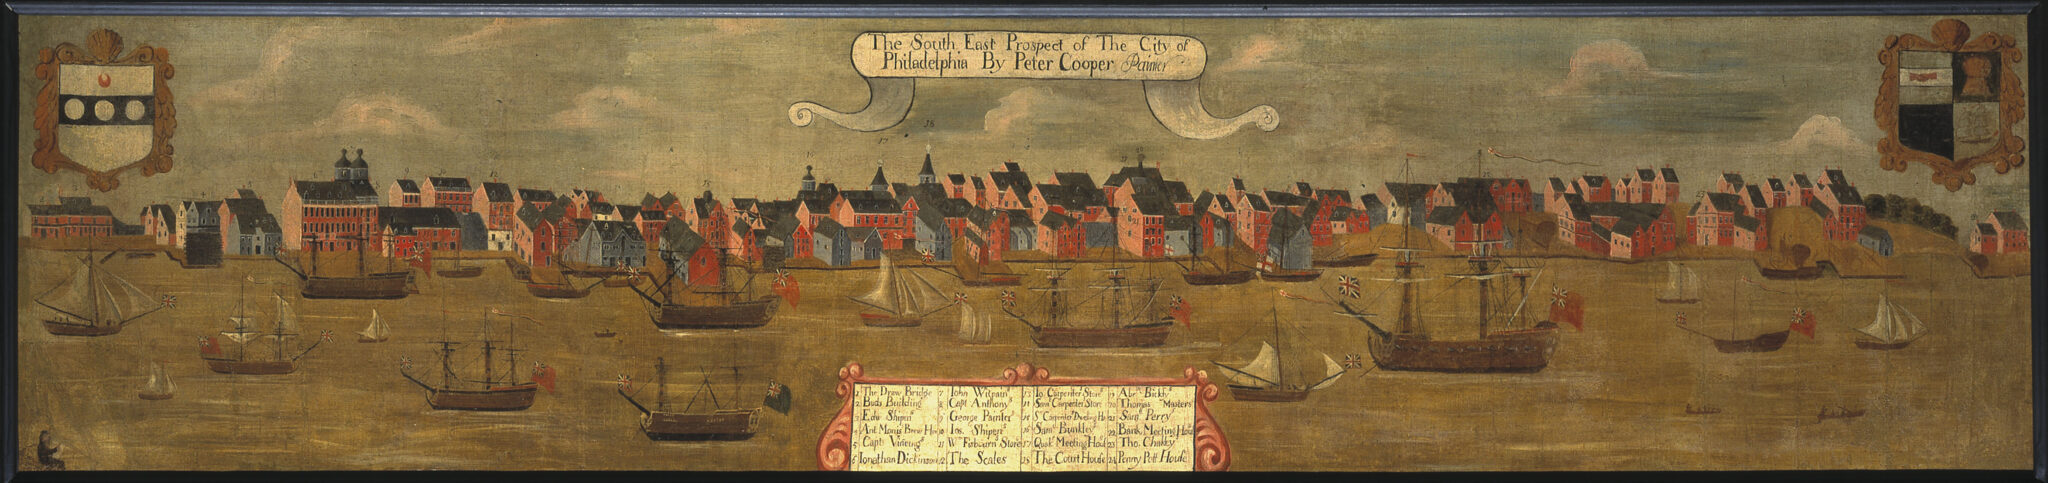 The South East Prospect of The City of
Philadelphia By Peter Cooper Painter
1 The Draw Bridge
2 Buds Building
3 Edw Shipens
4 Ant Morris Brew Hou
5 Capt Vineing
6 Jonathan Dickinson
7 John Witpain
8 Capt Anthony
9 George Painter
10 Jos. Shipens
11 W Store
12 The Scales
13 Jo. Carpenters Store
14 Sam Carpenter Store
15 S Carpenters Dweling Hou
16 Saml Bunkley
17 Quak Meeting Hous
18 The Court House
19 Abr Bickly
20 Thomas Masters
21 Saml Perry
22 Bank Meeting House
23 Tho. Chalkly
24 Penny Pott House